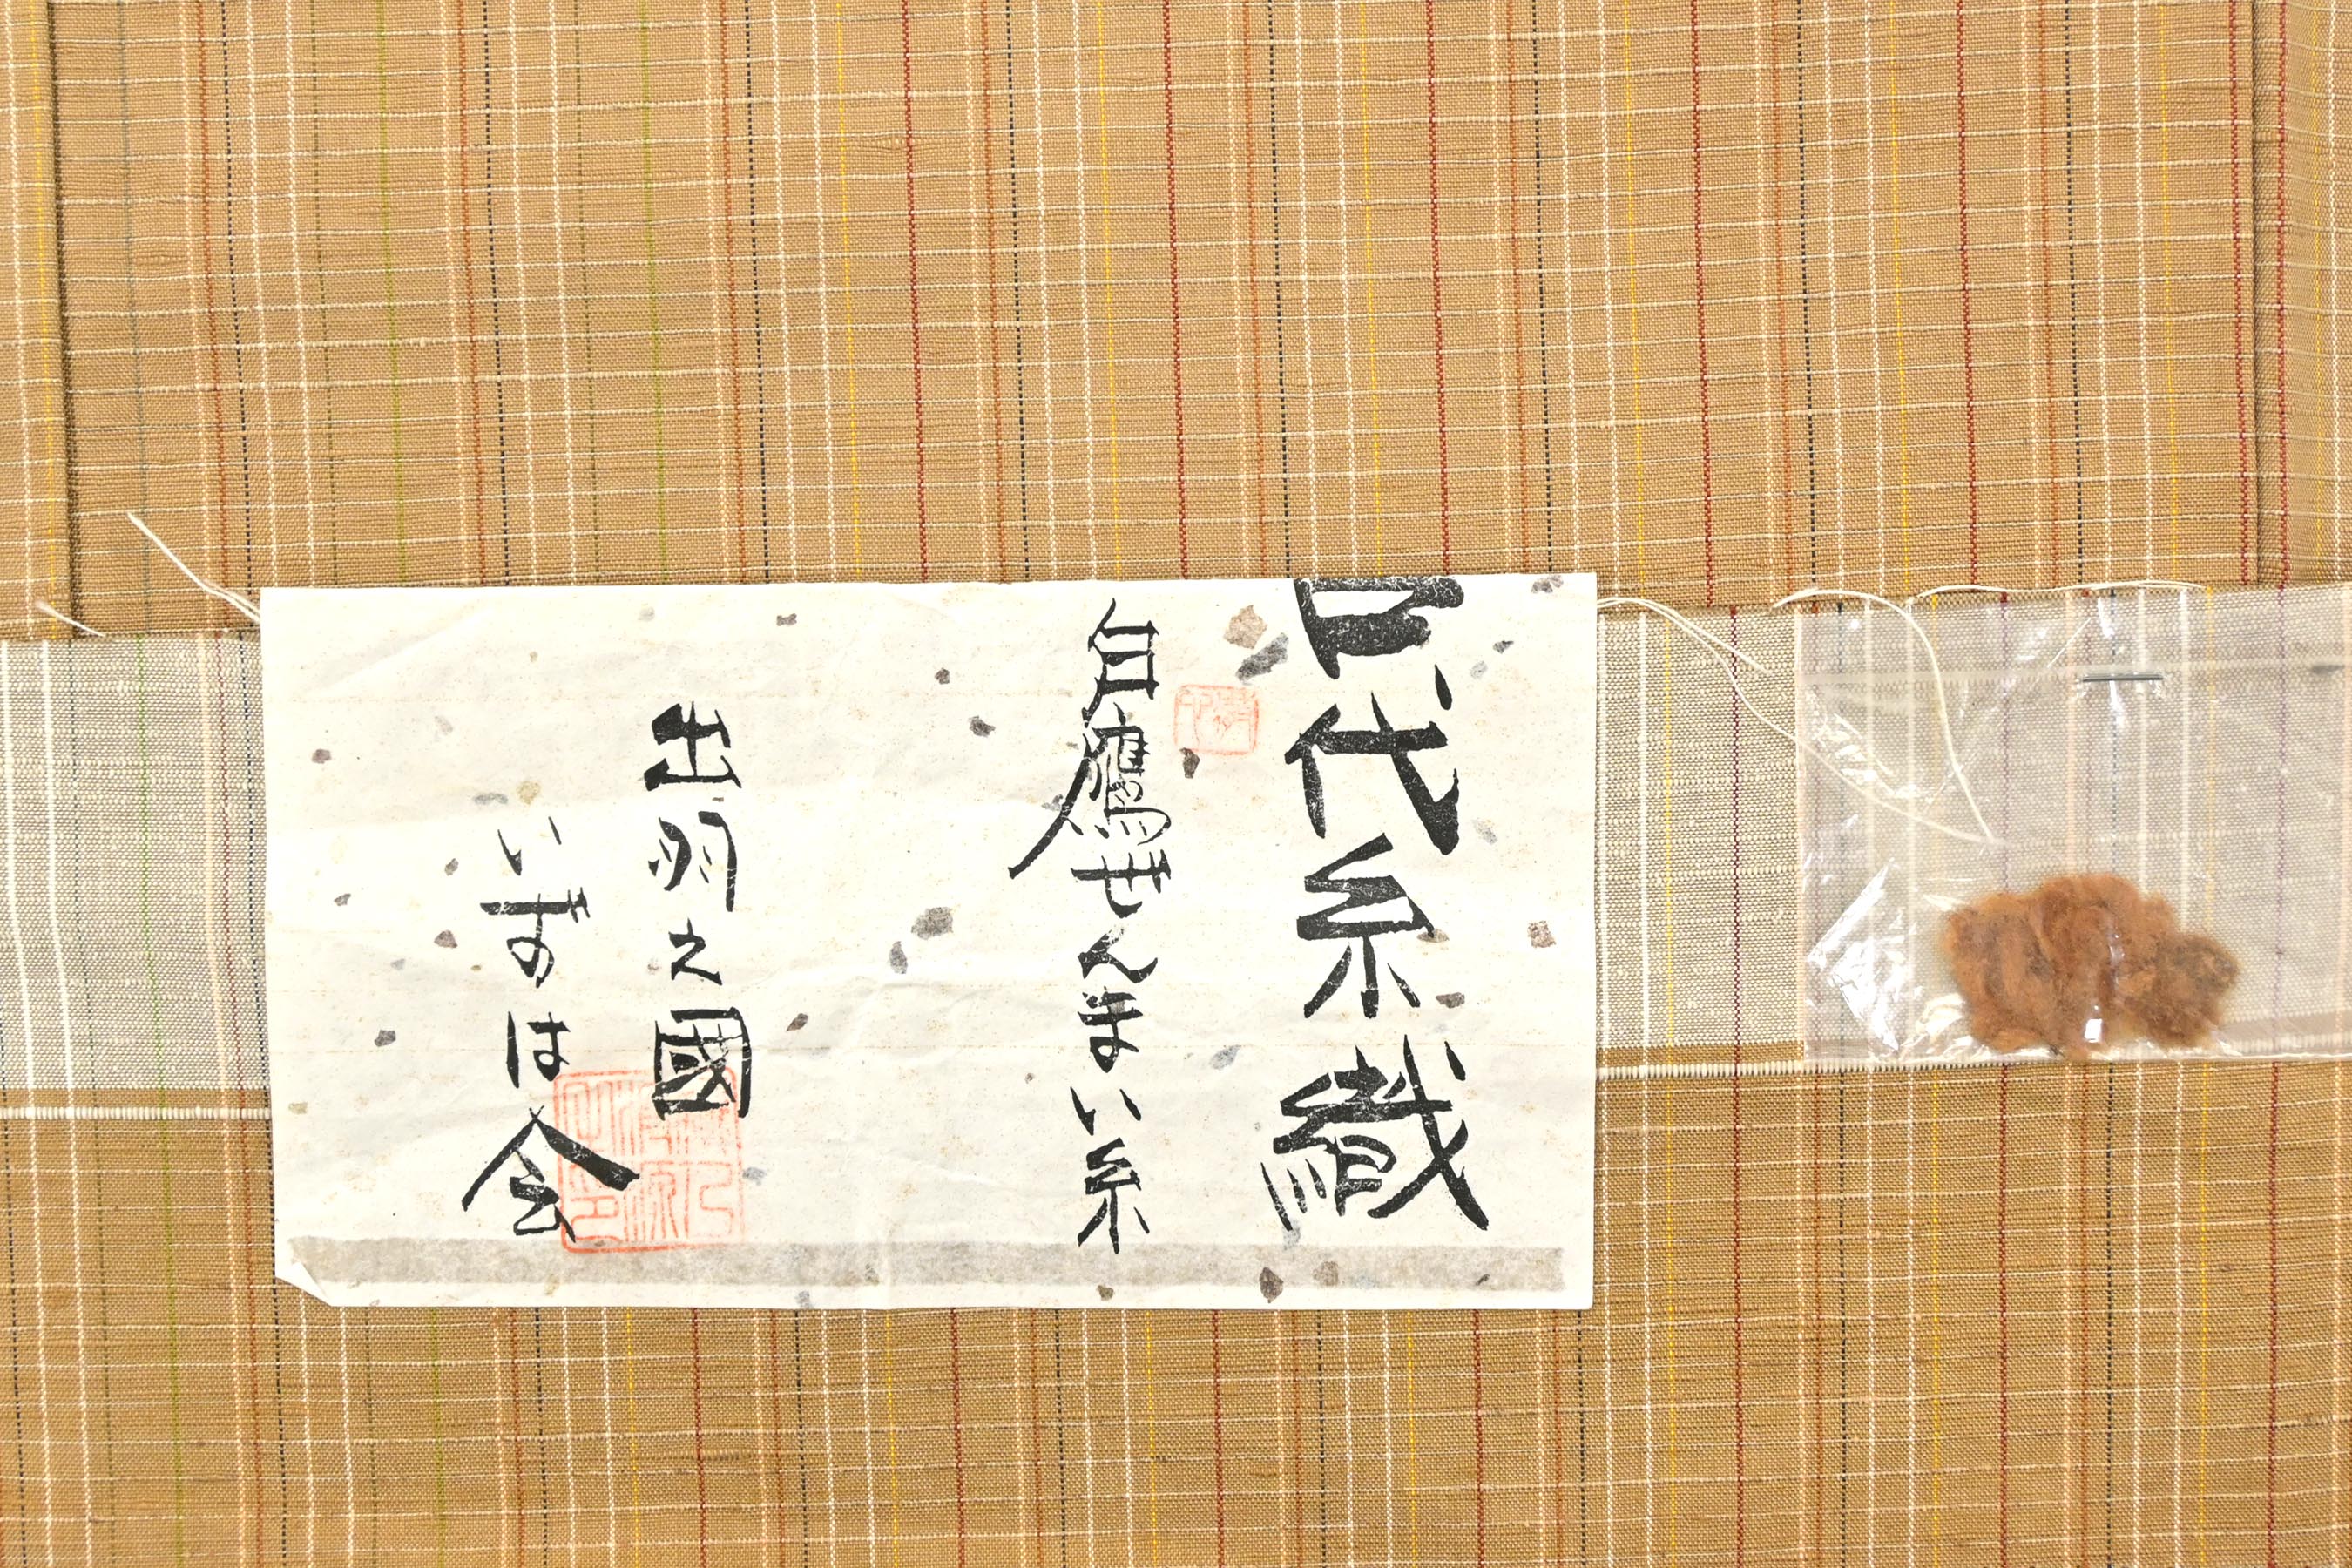 古代糸織
白鷹ぜんまい糸
出羽之國
いずは会